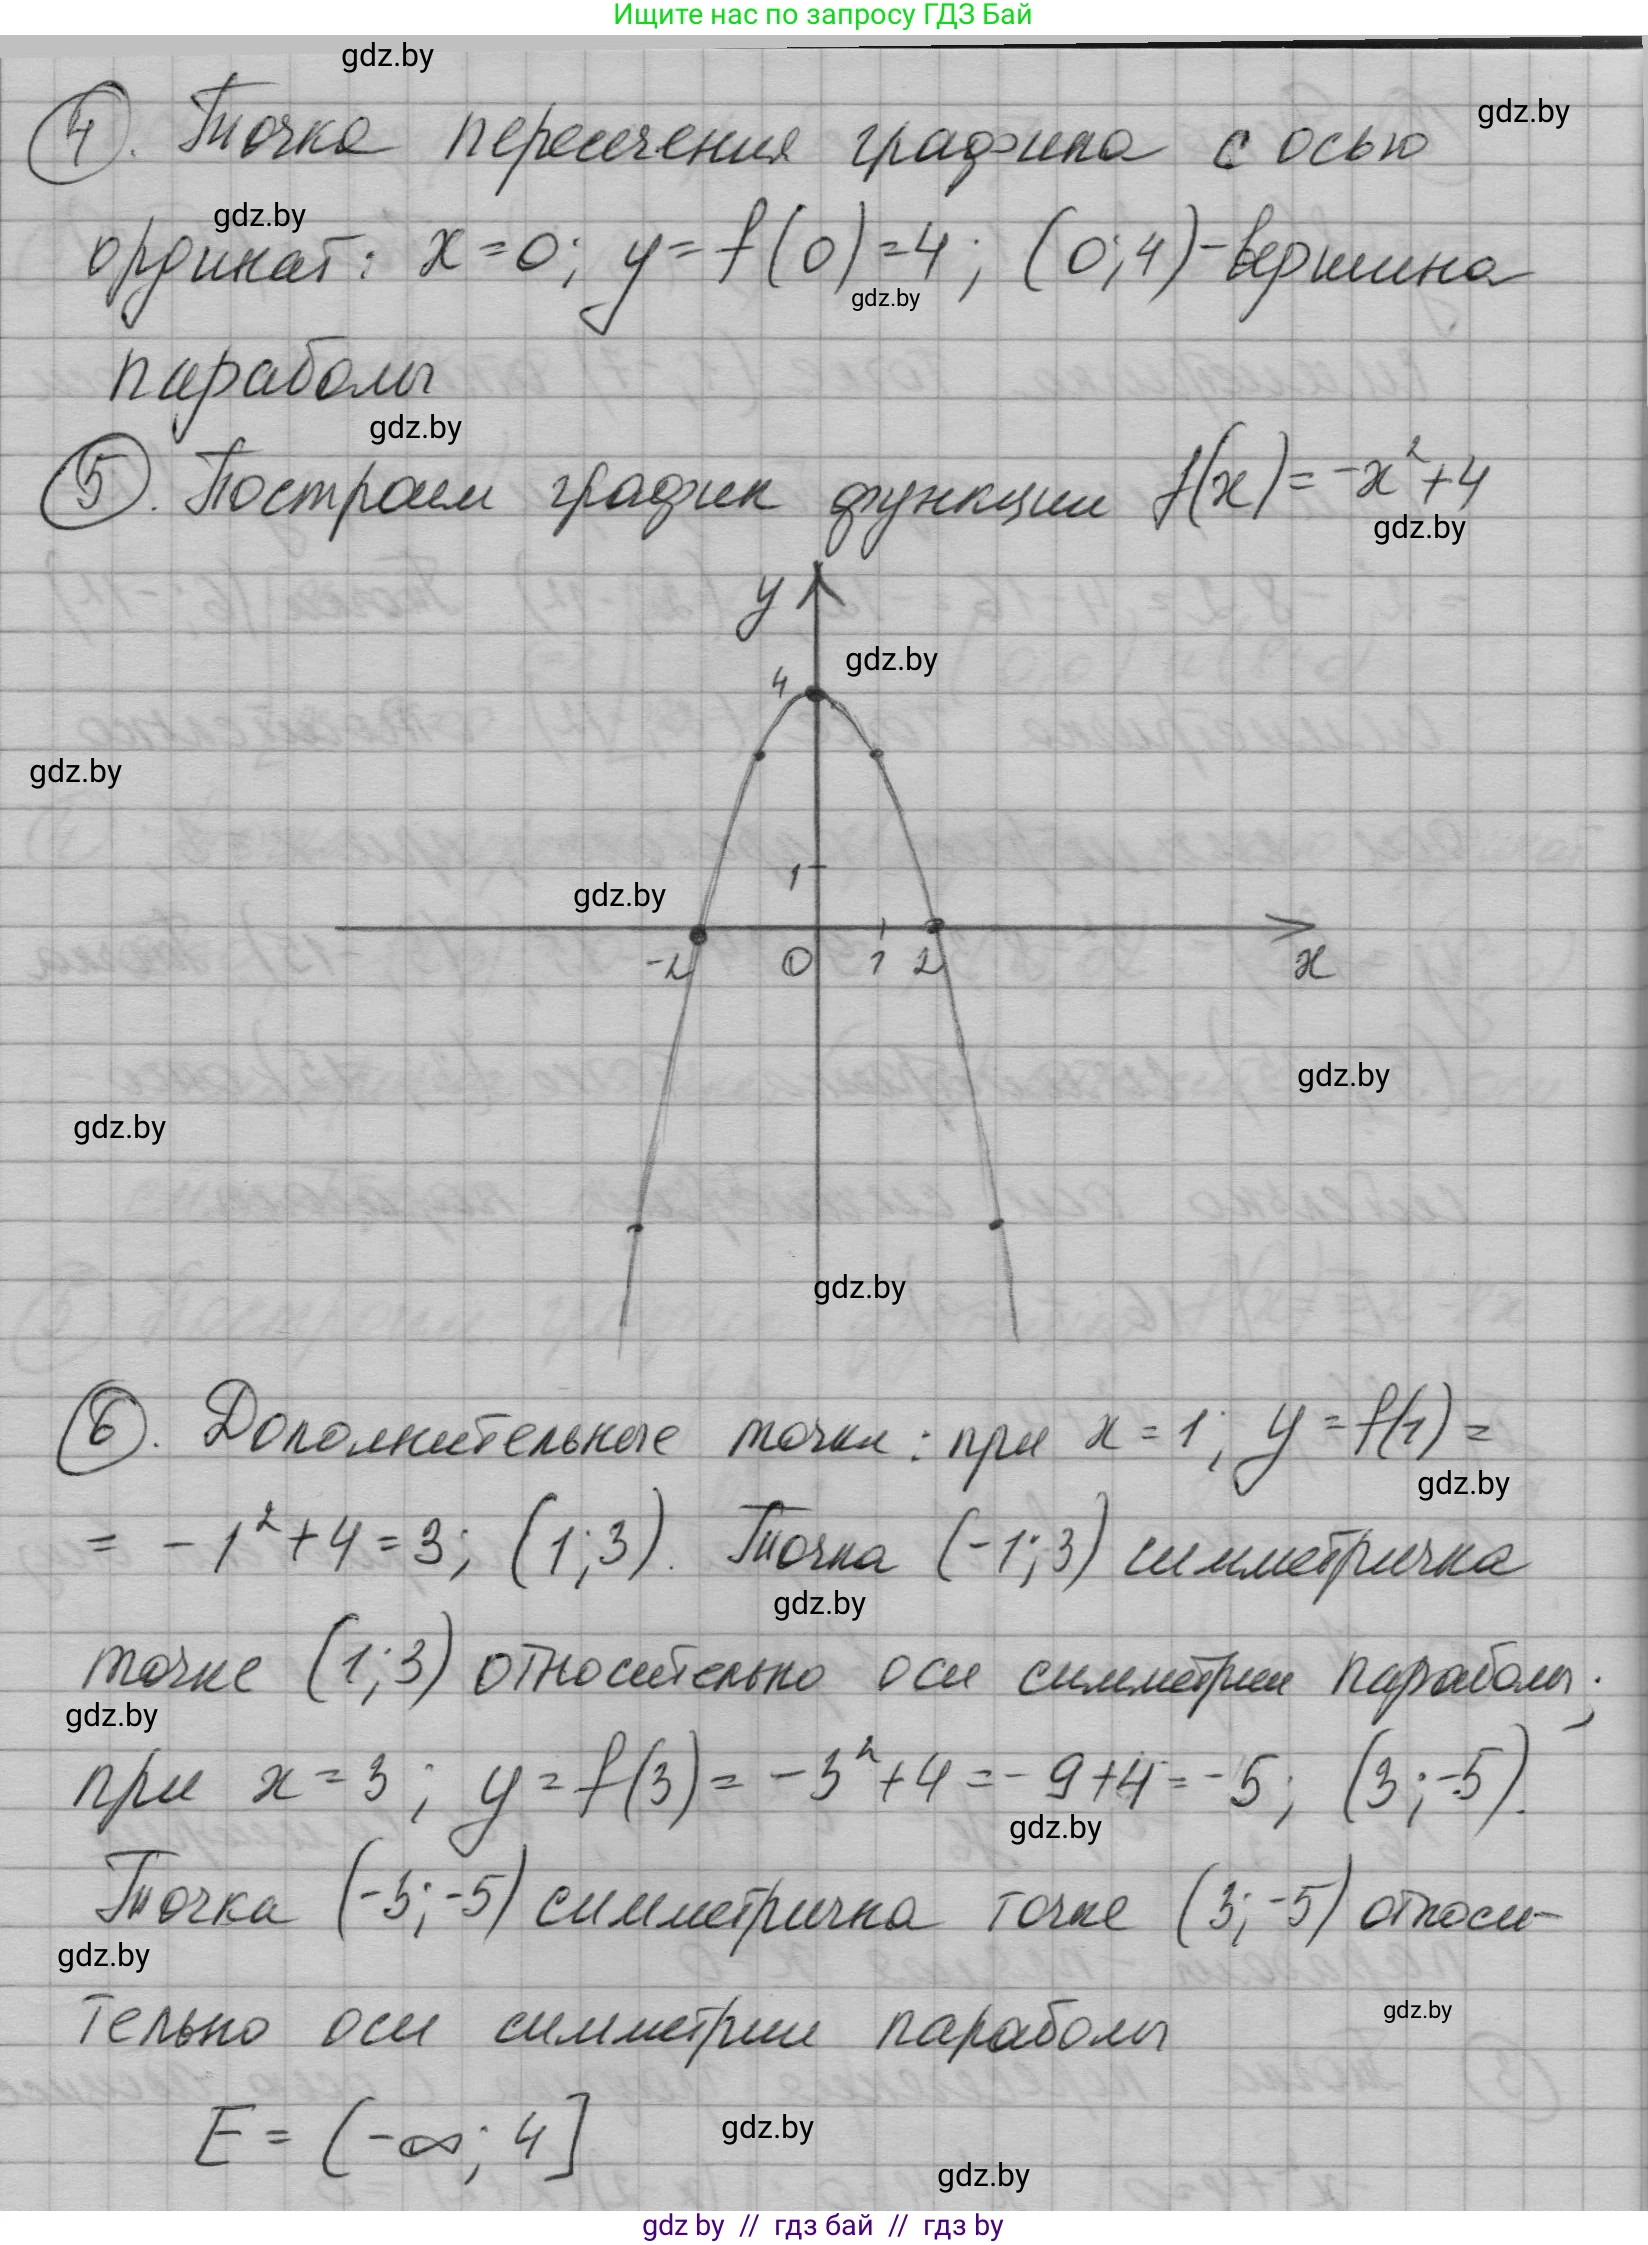 Ищите нас по запросу ГДЗ Бай
gdz.by
gdz.by
4. Точка пересечения графика с осью
gdz.by
ординат: x=0; y=f(0)=4; (0;4)-вершина
gdz.by
параболы
gdz.by
5. Построим график функции f(x)=-x²+4
gdz.by
y
gdz.by
4
gdz.by
1
gdz.by
-2 0 1 2 x
gdz.by
gdz.by
gdz.by
6. Дополнительные точки: при x=1; y=f(1)=
gdz.by
= -1²+4=3; (1;3). Точка (-1;3) симметрична
gdz.by
точке (1;3) относительно оси симметрии параболы;
gdz.by
при x=3; y=f(3)=-3²+4=-9+4=-5; (3;-5).
gdz.by
Точка (-3;-5) симметрична точке (3;-5) относи-
gdz.by
тельно оси симметрии параболы
gdz.by
E=(-∞;4]
gdz.by
gdz.by
gdz by // гдз бай // гдз by